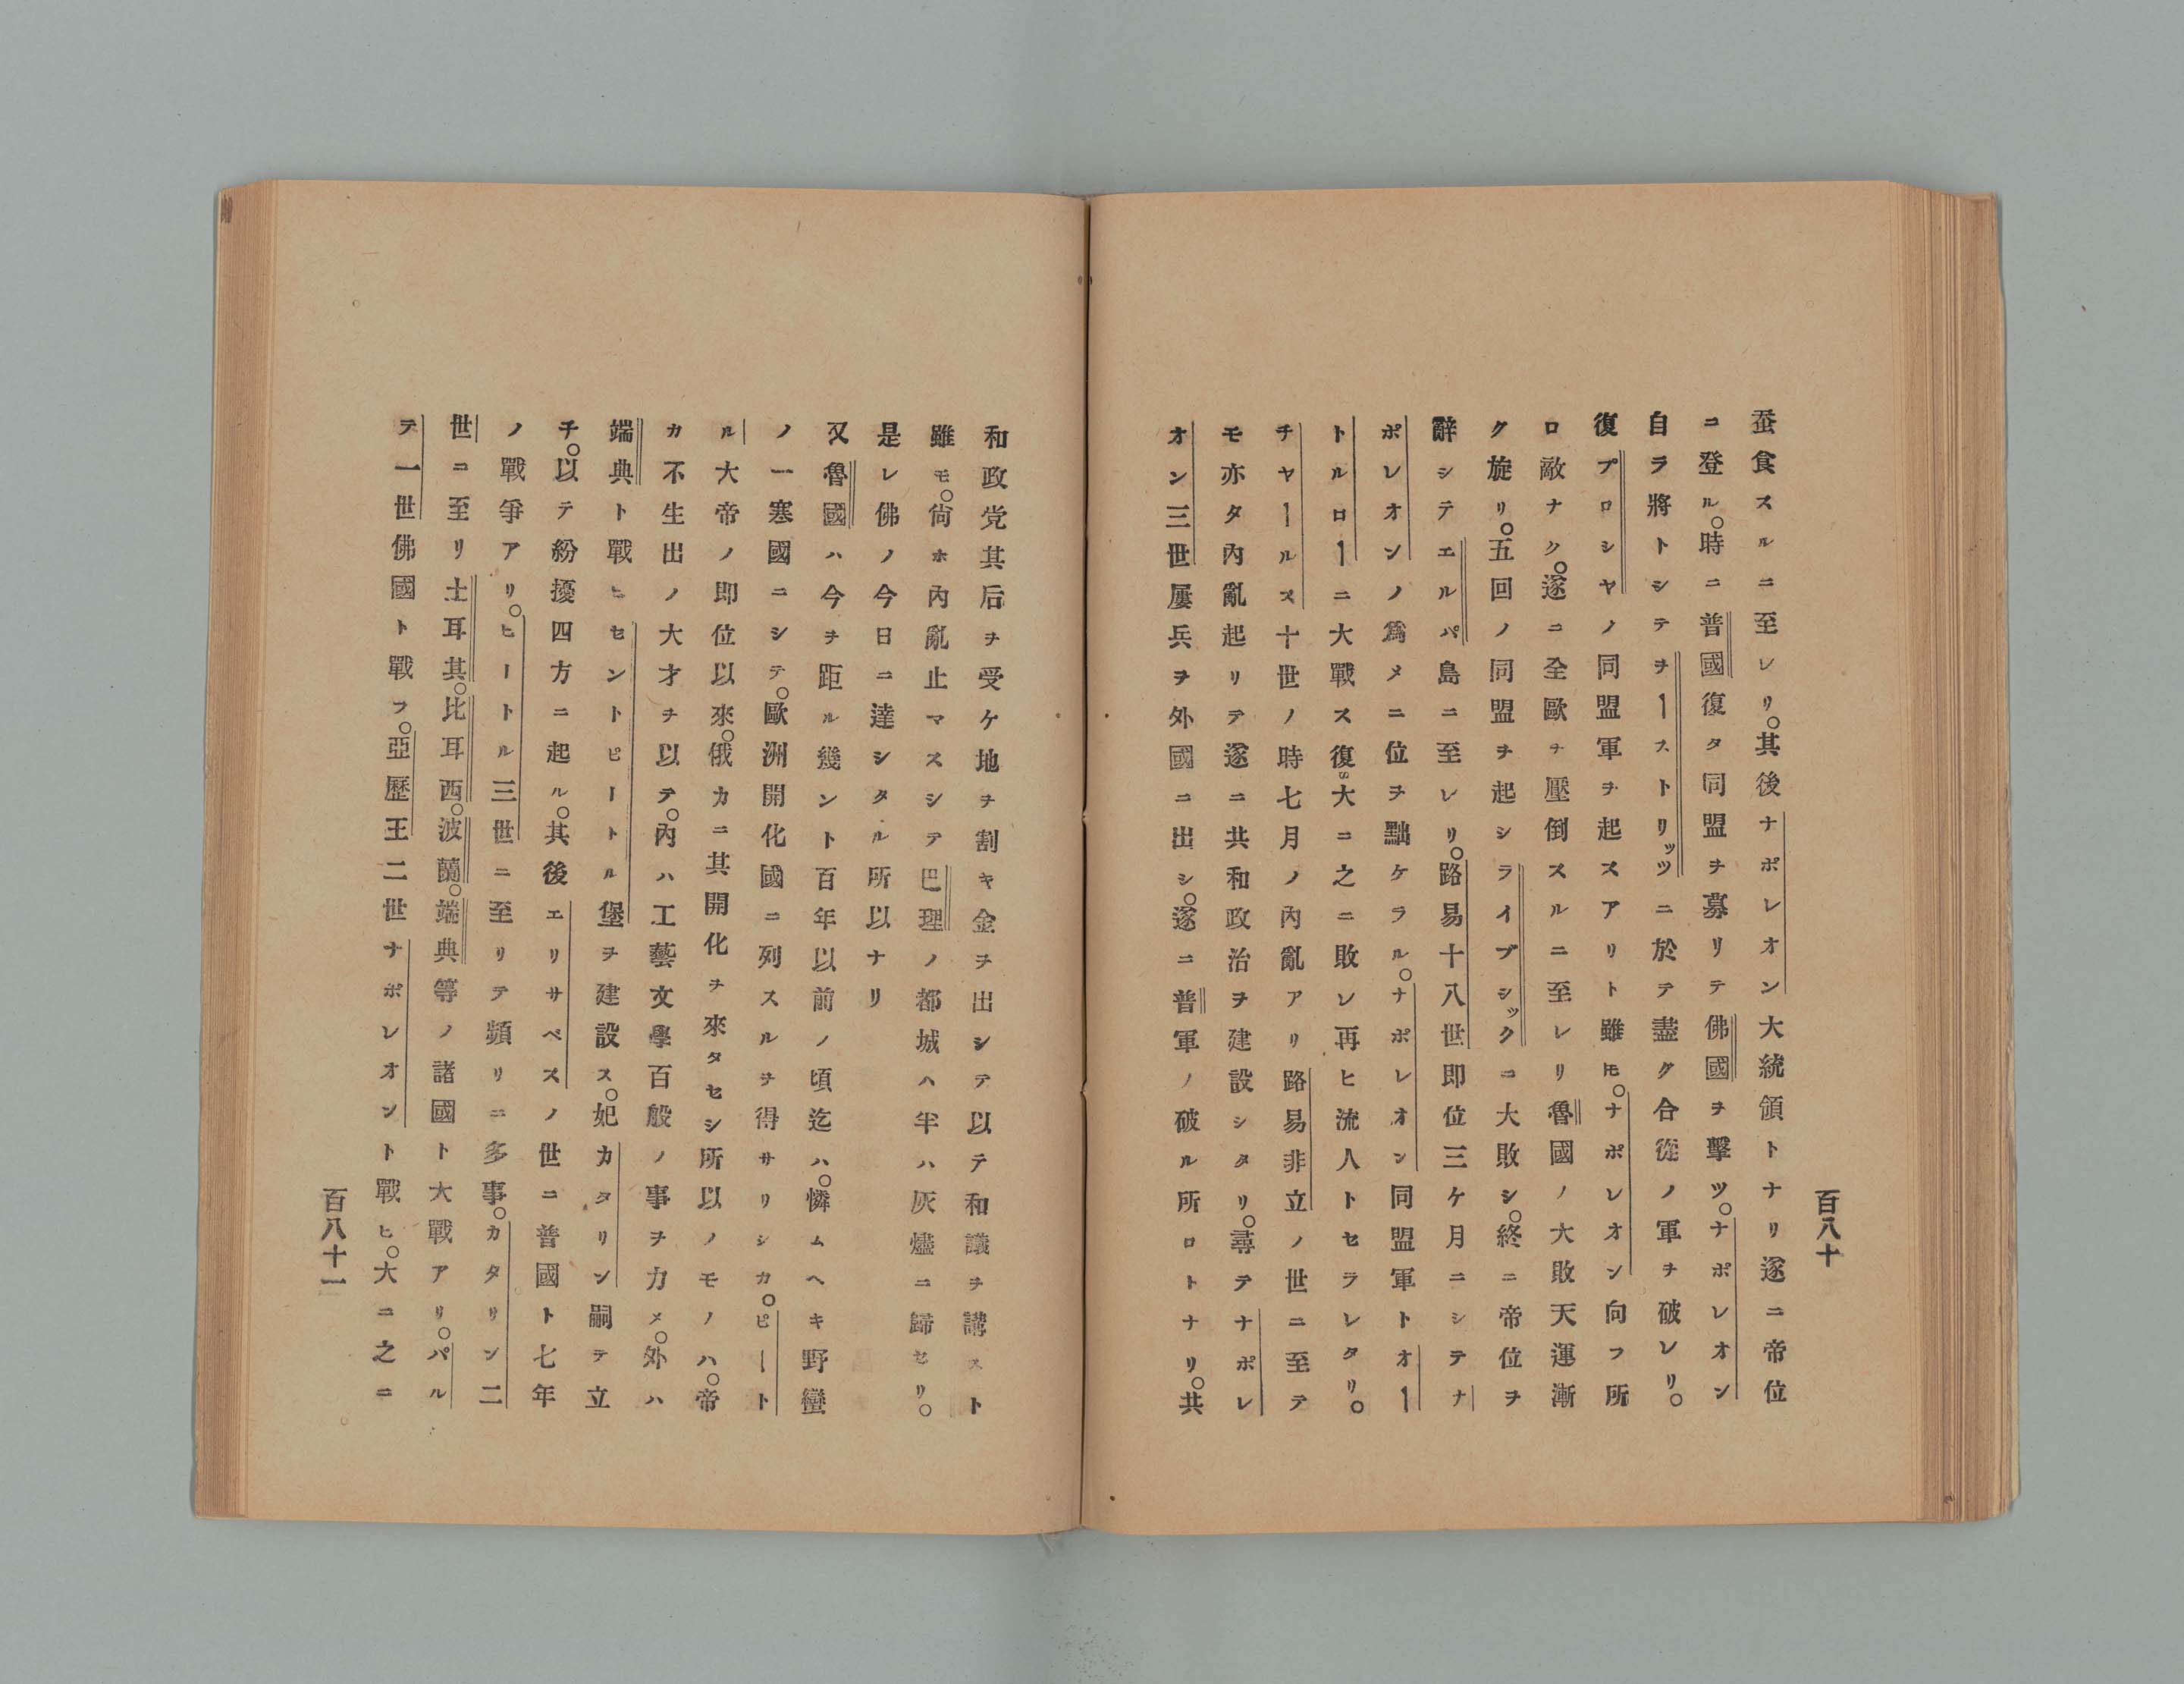 百八十
蚕食スルニ至レリ。其後ナポレオン大統領トナリ遂ニ帝位
ニ登ル。時ニ普國復タ同盟ヲ募リテ佛國ヲ擊ツ。ナポレオン
自ラ將トシテヲーストリッツニ於テ盡ク合從ノ軍ヲ破レリ。
復プロシヤノ同盟軍ヲ起スアリト雖𪜈。ナポレオン向フ所
ロ敵ナク。遂ニ全歐ヲ壓倒スルニ至レリ魯國ノ大敗天運漸
ク旋リ。五回ノ同盟ヲ起シライプシックニ大敗シ。終ニ帝位ヲ
辭シテエルバ島ニ至レリ。路易十八世即位三ケ月ニシテナ
ポレオンノ爲メニ位ヲ黜ケラル。ナポレオン同盟軍トオー
トルローニ大戰ス復大ニ之ニ敗レ再ヒ流人トセラレタリ。
チヤールス十世ノ時七月ノ內亂アリ路易非立ノ世ニ至テ
モ亦タ內亂起リテ遂ニ共和政治ヲ建設シタリ。尋テナポレ
オン三世屢兵ヲ外國ニ出シ。遂ニ普軍ノ破ル所ロトナリ。共
和政党其后ヲ受ケ地ヲ割キ金ヲ出シテ以テ和議ヲ講スト
雖モ。尙ホ內亂止マスシテ巴理ノ都城ハ半ハ灰燼ニ歸セリ。
是レ佛ノ今日ニ達シタル所以ナリ
又魯國ハ今ヲ距ル幾ント百年以前ノ頃迄ハ。憐ムヘキ野蠻
ノ一寒國ニシテ。歐洲開化國ニ列スルヲ得サリシカ。ピート
ル大帝ノ即位以來。俄カニ其開化ヲ來タセシ所以ノモノハ。帝
カ不生出ノ大才ヲ以テ。內ハ工藝文學百般ノ事ヲ力メ。外ハ
端典ト戰ヒセントピートル堡ヲ建設ス。妃カタリン嗣テ立
チ。以テ紛擾四方ニ起ル。其後エリサベスノ世ニ普國ト七年
ノ戰爭アリ。ヒートル三世ニ至リテ頻リニ多事。カタリン二
世ニ至リ土耳其。比耳西。波蘭。端典等ノ諸國ト大戰アリ。パル
テ一世佛國ト戰フ。亞歷王二世ナポレオント戰ヒ。大ニ之ニ
百八十一